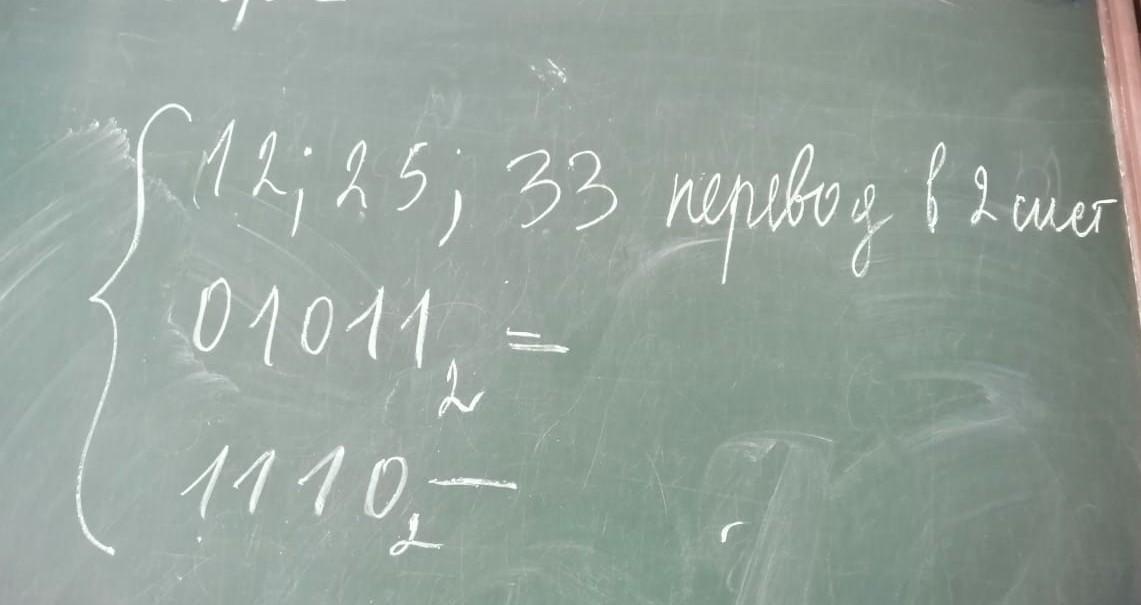 12; 25; 33 перевод в 2 сист
01011₂ =
1110₂ —